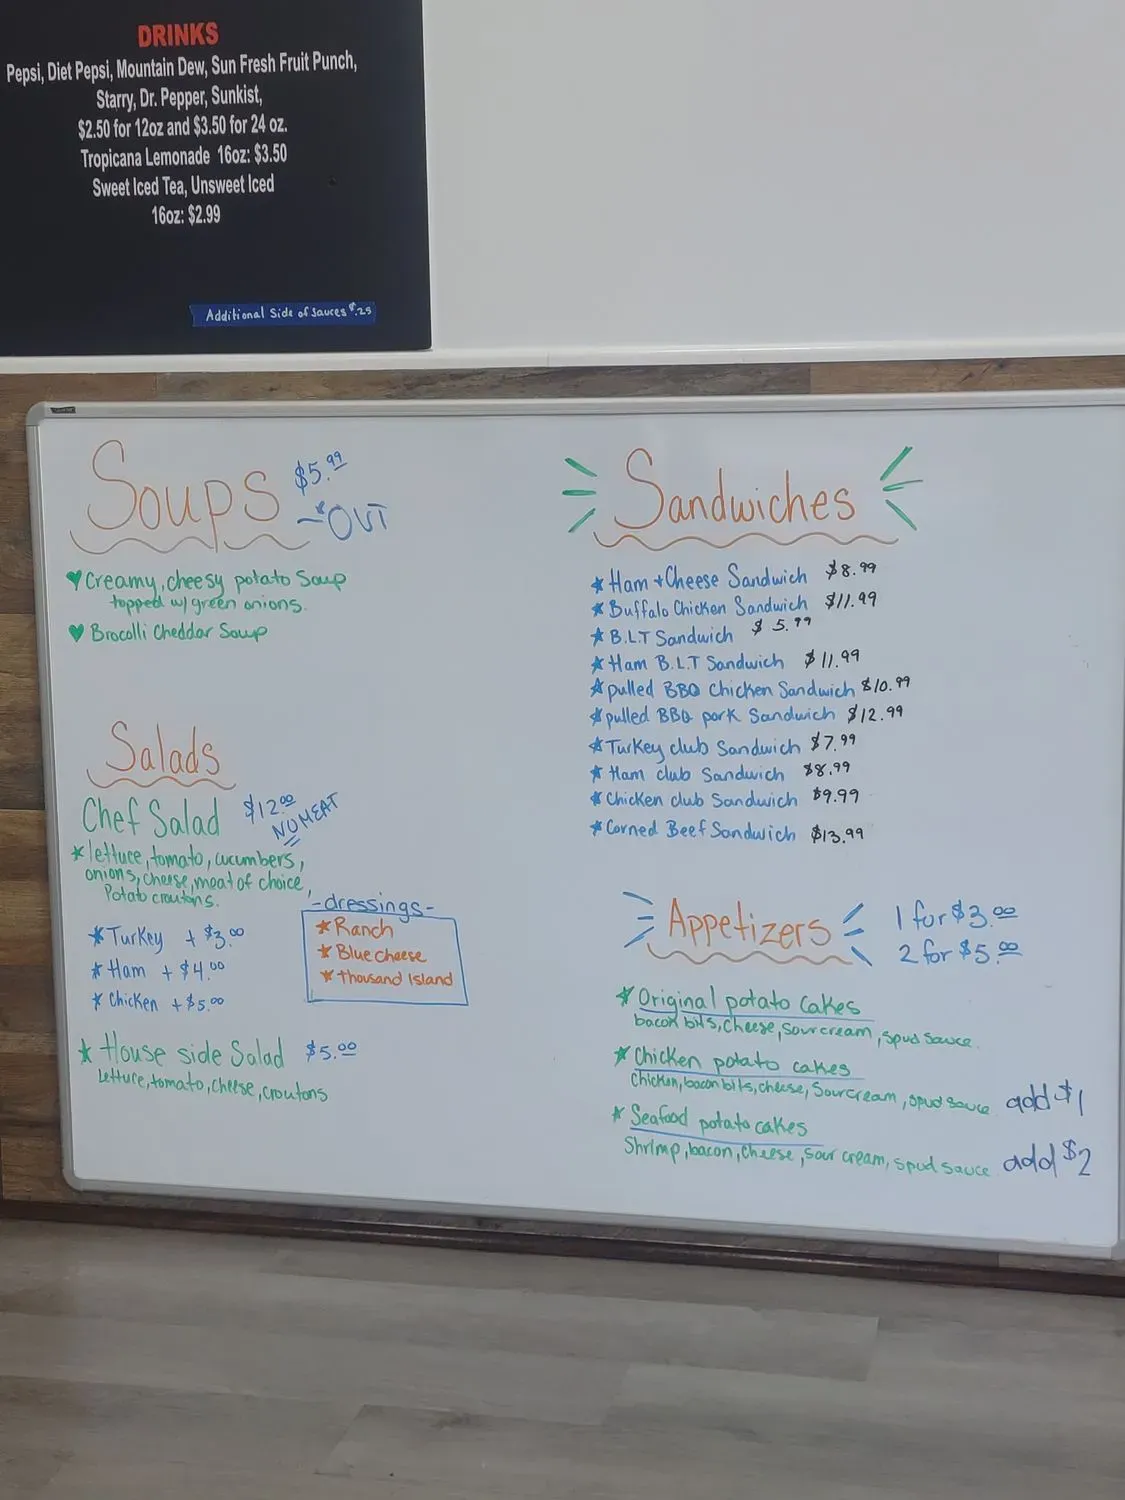 DRINKS
Pepsi, Diet Pepsi, Mountain Dew, Sun Fresh Fruit Punch,
Starry, Dr. Pepper, Sunkist,
$2.50 for 12oz and $3.50 for 24 oz.
Tropicana Lemonade 16oz: $3.50
Sweet Iced Tea, Unsweet Iced
16oz: $2.99
Additional Side of Sauces $.25
Soups $5.99
- OUT
Creamy, cheesy potato Soup
topped w/ green onions.
Brocolli Cheddar Soup
Salads
Chef Salad $12.00
NO MEAT
lettuce, tomato, cucumbers,
onions, cheese, meat of choice,
Potato croutons.
Turkey + $3.00
Ham + $4.00
Chicken + $5.00
-dressings-
Ranch
Blue cheese
thousand Island
House side Salad $5.00
Lettuce, tomato, cheese, croutons
Sandwiches
Ham + Cheese Sandwich $8.99
Buffalo Chicken Sandwich $11.99
B.L.T Sandwich $5.99
Ham B.L.T Sandwich $11.99
pulled BBQ Chicken Sandwich $10.99
pulled BBQ pork Sandwich $12.99
Turkey club Sandwich $7.99
Ham club Sandwich $8.99
Chicken club Sandwich $9.99
Corned Beef Sandwich $13.99
Appetizers
1 for $3.00
2 for $5.00
Original potato cakes
bacon bits, cheese, sour cream, spud sauce.
Chicken potato cakes
Chicken, bacon bits, cheese, Sour cream, spud sauce. add $1
Seafood potato cakes
Shrimp, bacon, cheese, sour cream, spud sauce. add $2